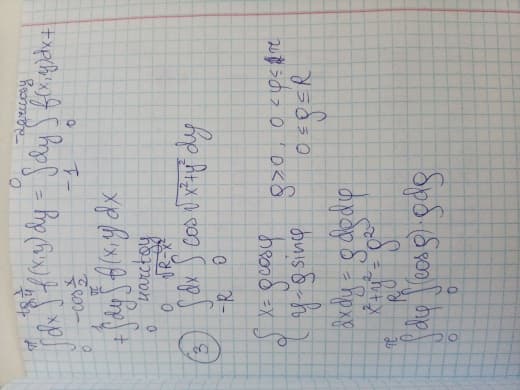 ∫₀^π dx ∫_{-cos x/2}^{tg x/4} f(x,y) dy = ∫_{-1}^0 dy ∫_0^{-2arccosy} f(x,y) dx +
+ ∫_0^1 dy ∫_{4arctgy}^π f(x,y) dx
③ ∫_{-R}^0 dx ∫_0^{√R-x²} cos √x²+y² dy
{ x = ρcosφ
y = ρ sinφ
ρ>0, 0 < φ ≤ π
0 ≤ ρ ≤ R
dxdy = ρ dρ dφ
x²+y² = ρ²
∫_0^π dφ ∫_0^R (cosρ)·ρ dρ